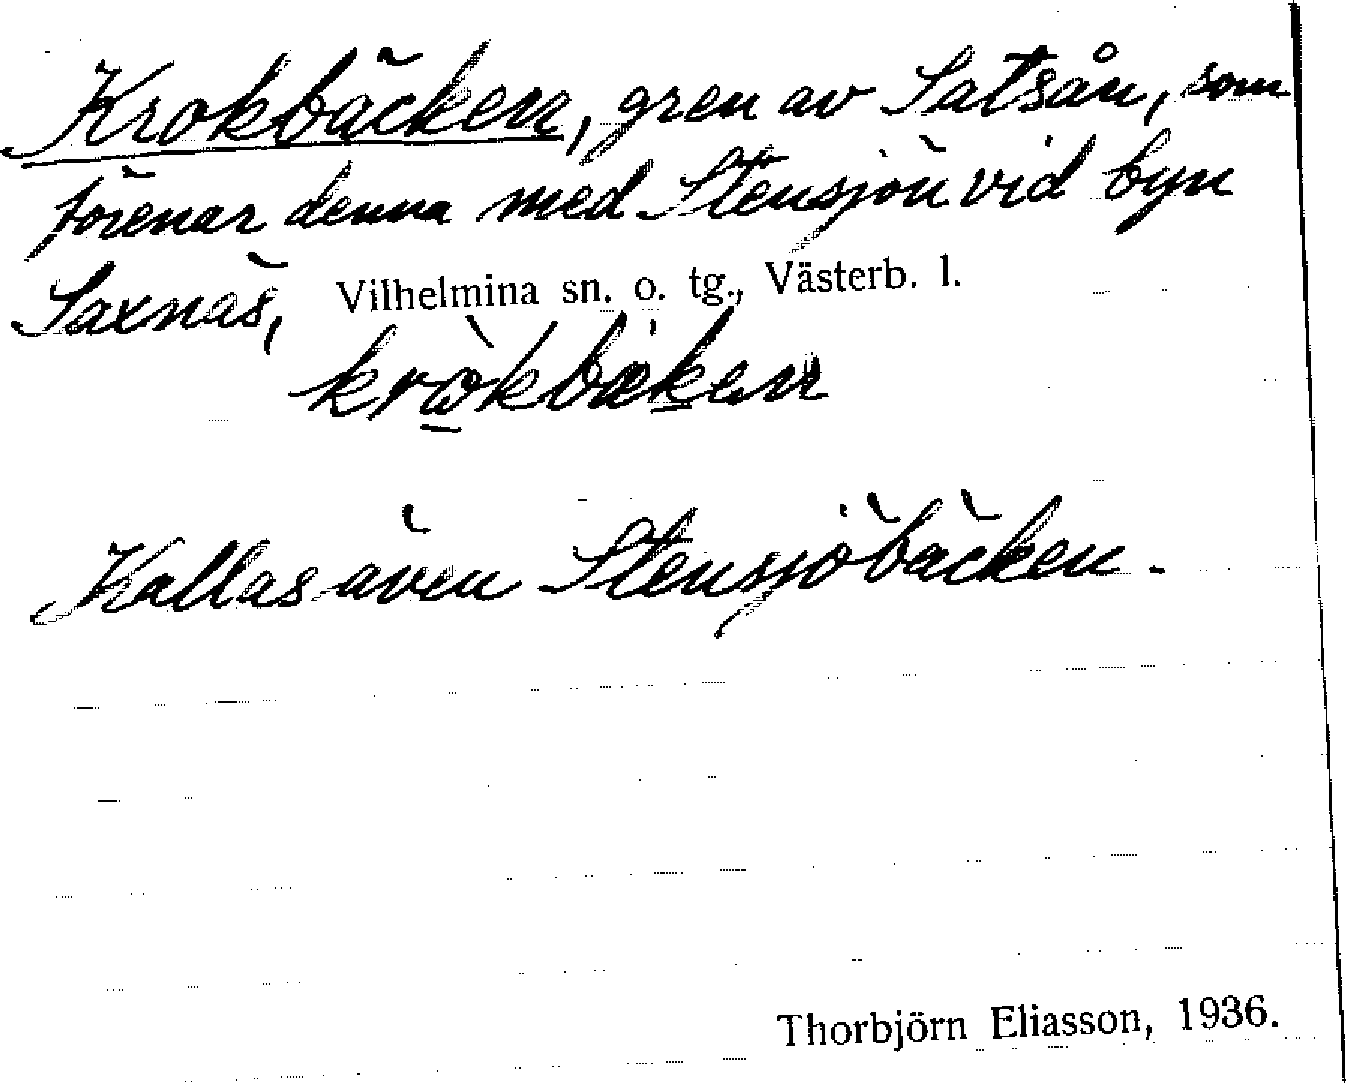 Krokbäcken, gren av Satsån, som
förenar denna med Stensjön vid byn
Saxnäs, Vilhelmina sn. o. tg., Västerb. l.
Kallas även Stensjöbäcken.
Thorbjörn Eliasson, 1936.